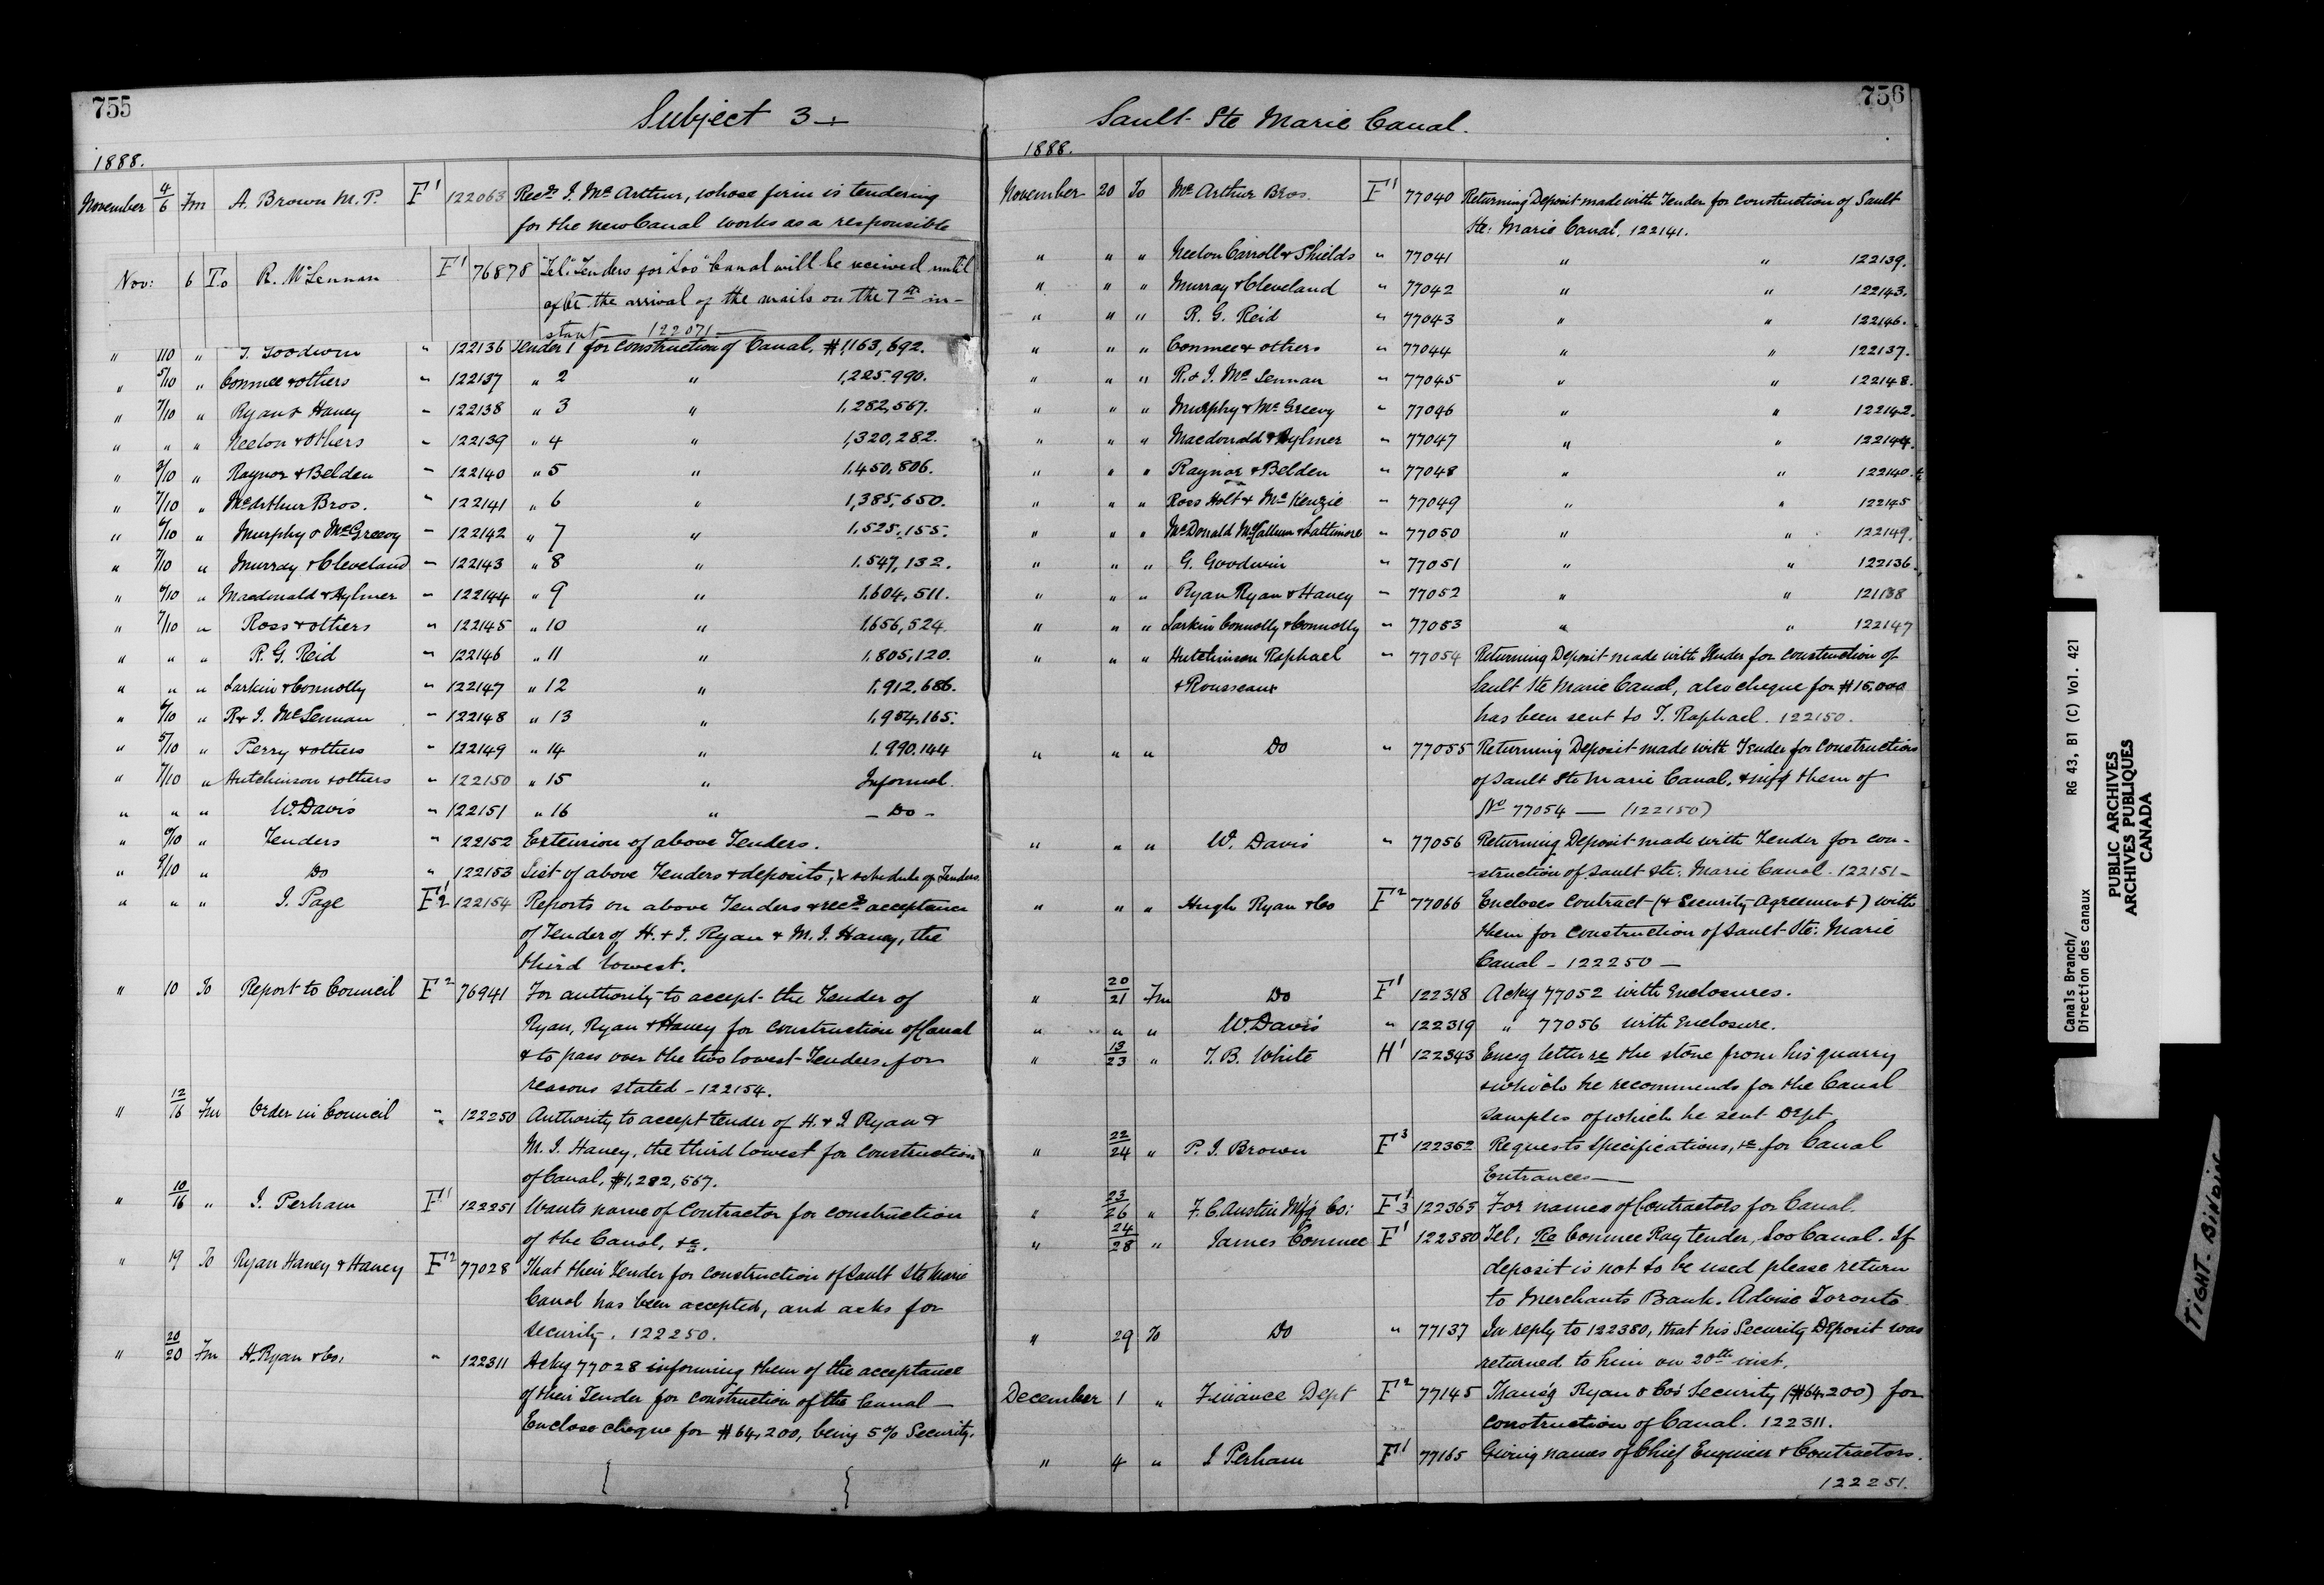 755
Subject 3
1888.
November 4/6 Fm A. Brown M.P. F1 122063 Recds J. Mc Arthur, whose firm is tendering
for the new Canal works as a responsible
Nov: 6 To R. McLennan F1 76878 "Tel." Tenders for "Soo" Canal will be received until
after the arrival of the mails on the 7th in-
stant — 122071 —
" 110 " G. Goodwin " 122136 Tender 1 for construction of Canal, $1,163,692.
" 5/10 " Conmee & others " 122137 " 2 " 1,225,990.
" 7/10 " Ryan & Haney " 122138 " 3 " 1,282,567.
" " " Neelon & Others " 122139 " 4 " 1,320,282.
" 2/10 " Raynor & Belden " 122140 " 5 " 1,450,806.
" 7/10 " McArthur Bros. " 122141 " 6 " 1,385,650.
" 6/10 " Murphy & McGreevy " 122142 " 7 " 1,525,155.
" 7/10 " Murray & Cleveland " 122143 " 8 " 1,547,132.
" 6/10 " Macdonald & Aylmer " 122144 " 9 " 1,604,511.
" 7/10 " Ross & others " 122145 " 10 " 1,656,524.
" " " R. G. Reid " 122146 " 11 " 1,805,120.
" " " Larkin & Connolly " 122147 " 12 " 1,912,686.
" 6/10 " R & J. McLennan " 122148 " 13 " 1,954,165.
" 5/10 " Perry & others " 122149 " 14 " 1,990,144
" 7/10 " Hutchinson & others " 122150 " 15 " Informal.
" " " W. Davis " 122151 " 16 " — Do —
" 9/10 " Tenders " 122152 Extension of above Tenders.
" 9/10 " Do " 122153 List of above Tenders & deposits, & schedule of Tenders
" " " J. Page F 1/2 122154 Reports on above Tenders & recds acceptance
of Tender of H. & J. Ryan & M. J. Haney, the
third lowest.
" 10 To Report to Council F2 76941 For authority to accept the Tender of
Ryan, Ryan & Haney for construction of Canal
& to pass over the two lowest Tenders for
reasons stated – 122154.
" 12/16 Fm Order in Council " 122250 Authority to accept tender of H. & J Ryan &
M. J. Haney, the third lowest for construction
of Canal, $1,282,567.
" 10/16 " J. Perham F1 122251 Wants name of Contractor for construction
of the Canal, &c.
" 19 To Ryan Haney & Haney F2 77028 That their Tender for construction of Sault Ste Marie
Canal has been accepted, and asks for
security. 122250.
" 20/20 Fm H. Ryan & Co. " 122311 Ackg 77028 informing them of the acceptance
of their Tender for construction of the Canal —
Enclose cheque for $64,200, being 5% Security.
756
Sault Ste Marie Canal.
1888.
November 20 To Mc Arthur Bros. F1 77040 Returning Deposit made with Tender for construction of Sault
Ste: Marie Canal. 122141.
" " " Neelon Carroll & Shields " 77041 " " 122139.
" " " Murray & Cleveland " 77042 " " 122143.
" " " R. G. Reid " 77043 " " 122146.
" " " Conmee & others " 77044 " " 122137.
" " " R. & J. Mc Lennan " 77045 " " 122148.
" " " Murphy & McGreevy " 77046 " " 122142.
" " " Macdonald & Aylmer " 77047 " " 122144.
" " " Raynor & Belden " 77048 " " 122140.
" " " Ross Holt & McKenzie " 77049 " " 122145
" " " McDonald McCallum & Lattimore " 77050 " " 122149.
" " " G. Goodwin " 77051 " " 122136.
" " " Ryan Ryan & Haney " 77052 " " 121138
" " " Larkin Connolly & Connolly " 77053 " " 122147
" " " Hutchinson Raphael " 77054 Returning Deposit made with Tender for construction of
& Rousseaux Sault Ste Marie Canal, also cheque for $15,000
has been sent to T. Raphael. 122150.
" " " Do " 77055 Returning Deposit made with Tender for construction
of Sault Ste Marie Canal, & infg them of
No 77054 — (122150)
" " " W. Davis " 77056 Returning Deposit made with Tender for con-
-struction of Sault Ste: Marie Canal. 122151 –
" " " Hugh Ryan & Co F2 77066 Encloses contract (& Security Agreement) with
them for construction of Sault Ste: Marie
Canal – 122250 —
" 20/21 Fm Do F1 122318 Ackg 77052 with Enclosures.
" " " W. Davis " 122319 " 77056 with Enclosure.
" 13/23 " T. B. White H1 122343 Encg letter re the stone from his quarry
& which he recommends for the Canal
samples of which he sent Dept
" 22/24 " P. J. Brown F3 122352 Requests specifications, &c for Canal
Entrances —
" 23/26 " F. C. Austin Mfg Co: F 1/3 122365 For names of Contractors for Canal.
" 24/28 " James Conmee F1 122380 Tel, Re Conmee Ray tender, Soo Canal. If
deposit is not to be used please return
to Merchants Bank. Advise Toronto.
" 29 To Do " 77137 In reply to 122380, that his Security Deposit was
returned to him on 20th inst.
December 1 " Finance Dept F2 77145 Trans'g Ryan & Co's Security ($64,200) for
construction of Canal. 122311.
" 4 " J Perham F1 77165 Giving names of Chief Engineer & Contractors.
122251.
Canals Branch/
Direction des canaux
RG 43, B1 (C) Vol. 421
PUBLIC ARCHIVES
ARCHIVES PUBLIQUES
CANADA
TIGHT BINDING